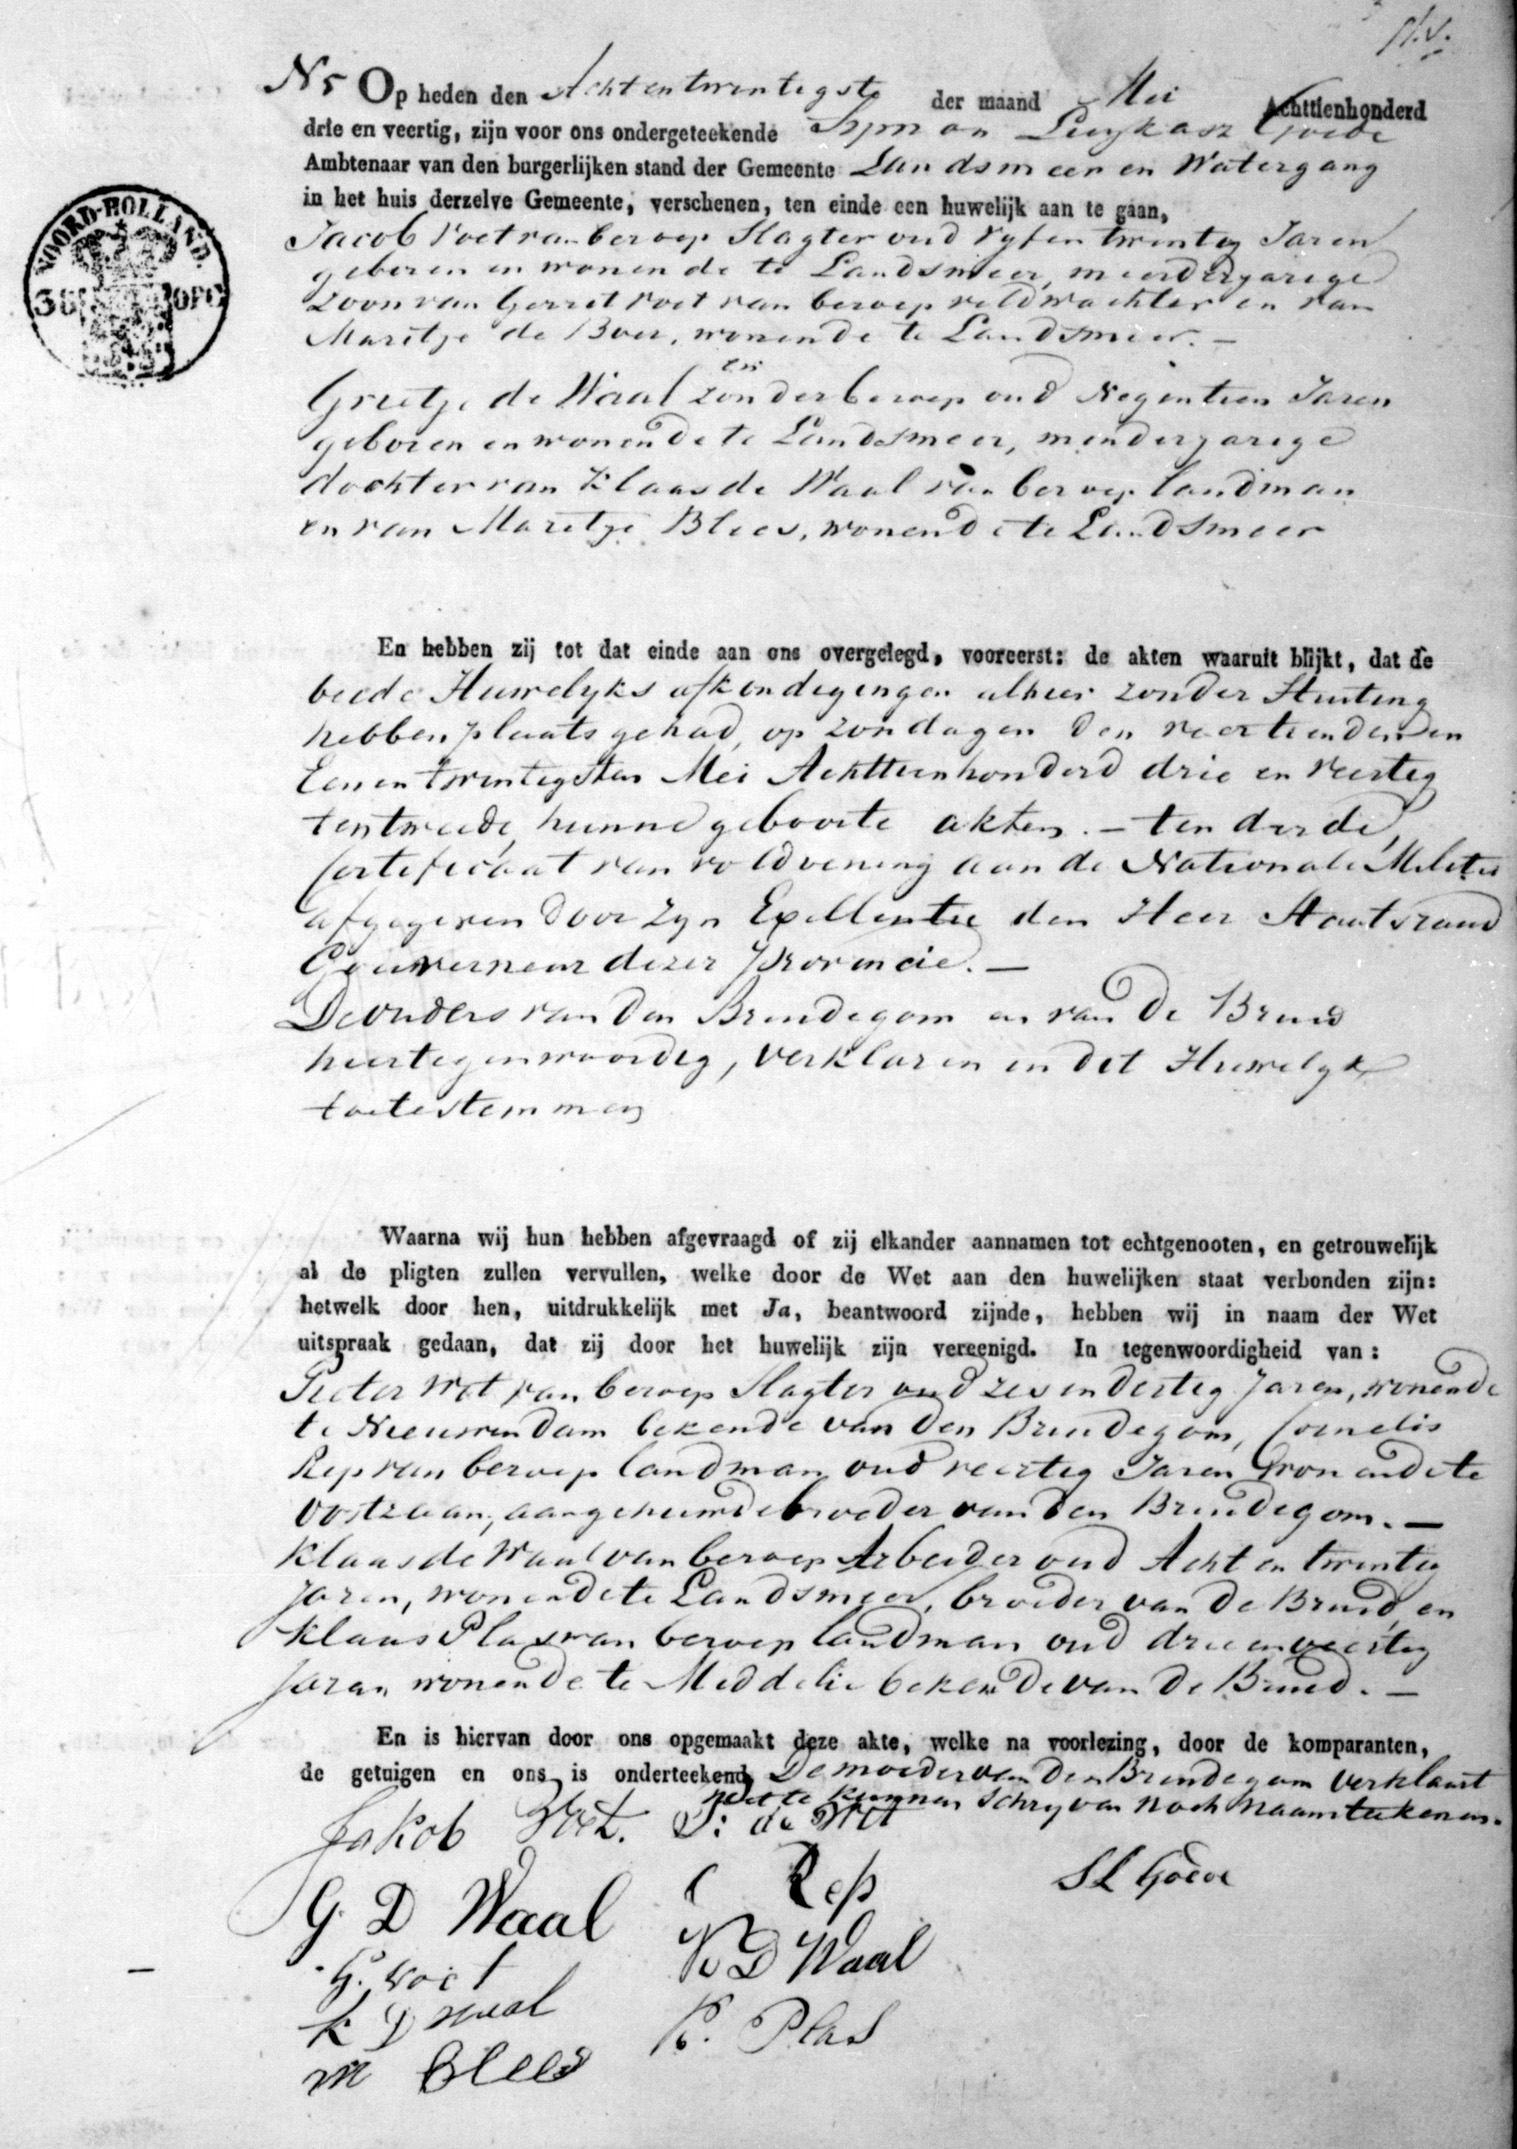 N 5 Op heden den Achtentwintigste der maand Mei Achttienhonderd
drie en veertig, zijn voor ons ondergeteekende Symon Luykasz Goede
Ambtenaar van den burgerlijken stand der Gemeente Landsmeer en Watergang
in het huis derzelve Gemeente, verschenen, ten einde een huwelijk aan te gaan,
NOORD-HOLLAND.
38 OPC
Jacob Voet van beroep Slagter oud vyf en twintig Jaren
geboren en wonende te Landsmeer, meerderjarige
zoon van Gerret Voet van beroep veldwachter en van
Maritje de Boer, wonende te Landsmeer. —
en
Grietje de Waal zonder beroep oud Negentien Jaren
geboren en wonende te Landsmeer, minderjarige
dochter van Klaas de Waal van beroep landman
en van Maritje Blees, wonende te Landsmeer
En hebben zij tot dat einde aan ons overgelegd, vooreerst: de akten waaruit blijkt, dat de
beede Huwelyks afkondegingen alhier zonder Stuiting
hebben plaats gehad, op zondagen den veertienden en
Eenentwintigsten Mei Achttienhonderd drie en Veertig
tentweede, hunne geboorte akten. — ten derde,
Certeficaat van voldoening aan de Nationale Militie
afgegeven door zyn Exellentie den Heer Staatsraad
Gouverneur dezer provincie. —
De ouders van den Bruidegom en van de Bruid
heertegenwoordig, verklaren in dit Huwelyk
toetestemmen
Waarna wij hun hebben afgevraagd of zij elkander aannamen tot echtgenooten, en getrouwelijk
al de pligten zullen vervullen, welke door de Wet aan den huwelijken staat verbonden zijn:
hetwelk door hen, uitdrukkelijk met Ja, beantwoord zijnde, hebben wij in naam der Wet
uitspraak gedaan, dat zij door het huwelijk zijn vereenigd. In tegenwoordigheid van:
Pieter Wit van beroep Slagter oud zes en dertig Jaren, wonende
te Nieuwendam bekende van den Bruidegom, Cornelis
Rep van beroep landman oud veertig Jaren wonende te
Oostzaan, aangehuwde broeder van den Bruidegom. —
Klaas de Waal van beroep Arbeider oud Acht en twintig
Jaren, wonende te Landsmeer, broeder van de Bruid, en
Klaas Plas van beroep landman oud drie en veertig
Jaren wonende te Middelie bekende van de Bruid. —
En is hiervan door ons opgemaakt deze akte, welke na voorlezing, door de komparanten,
de getuigen en ons is onderteekend, De moeder van den Bruidegom verklaart
niet te kunnen Schryven noch Naamteekenen.
Jakob Voet. P: de Wit
G. D Waal C Rep S L Goede
G. Voet K D Waal
K D Waal K. Plas
M Blees